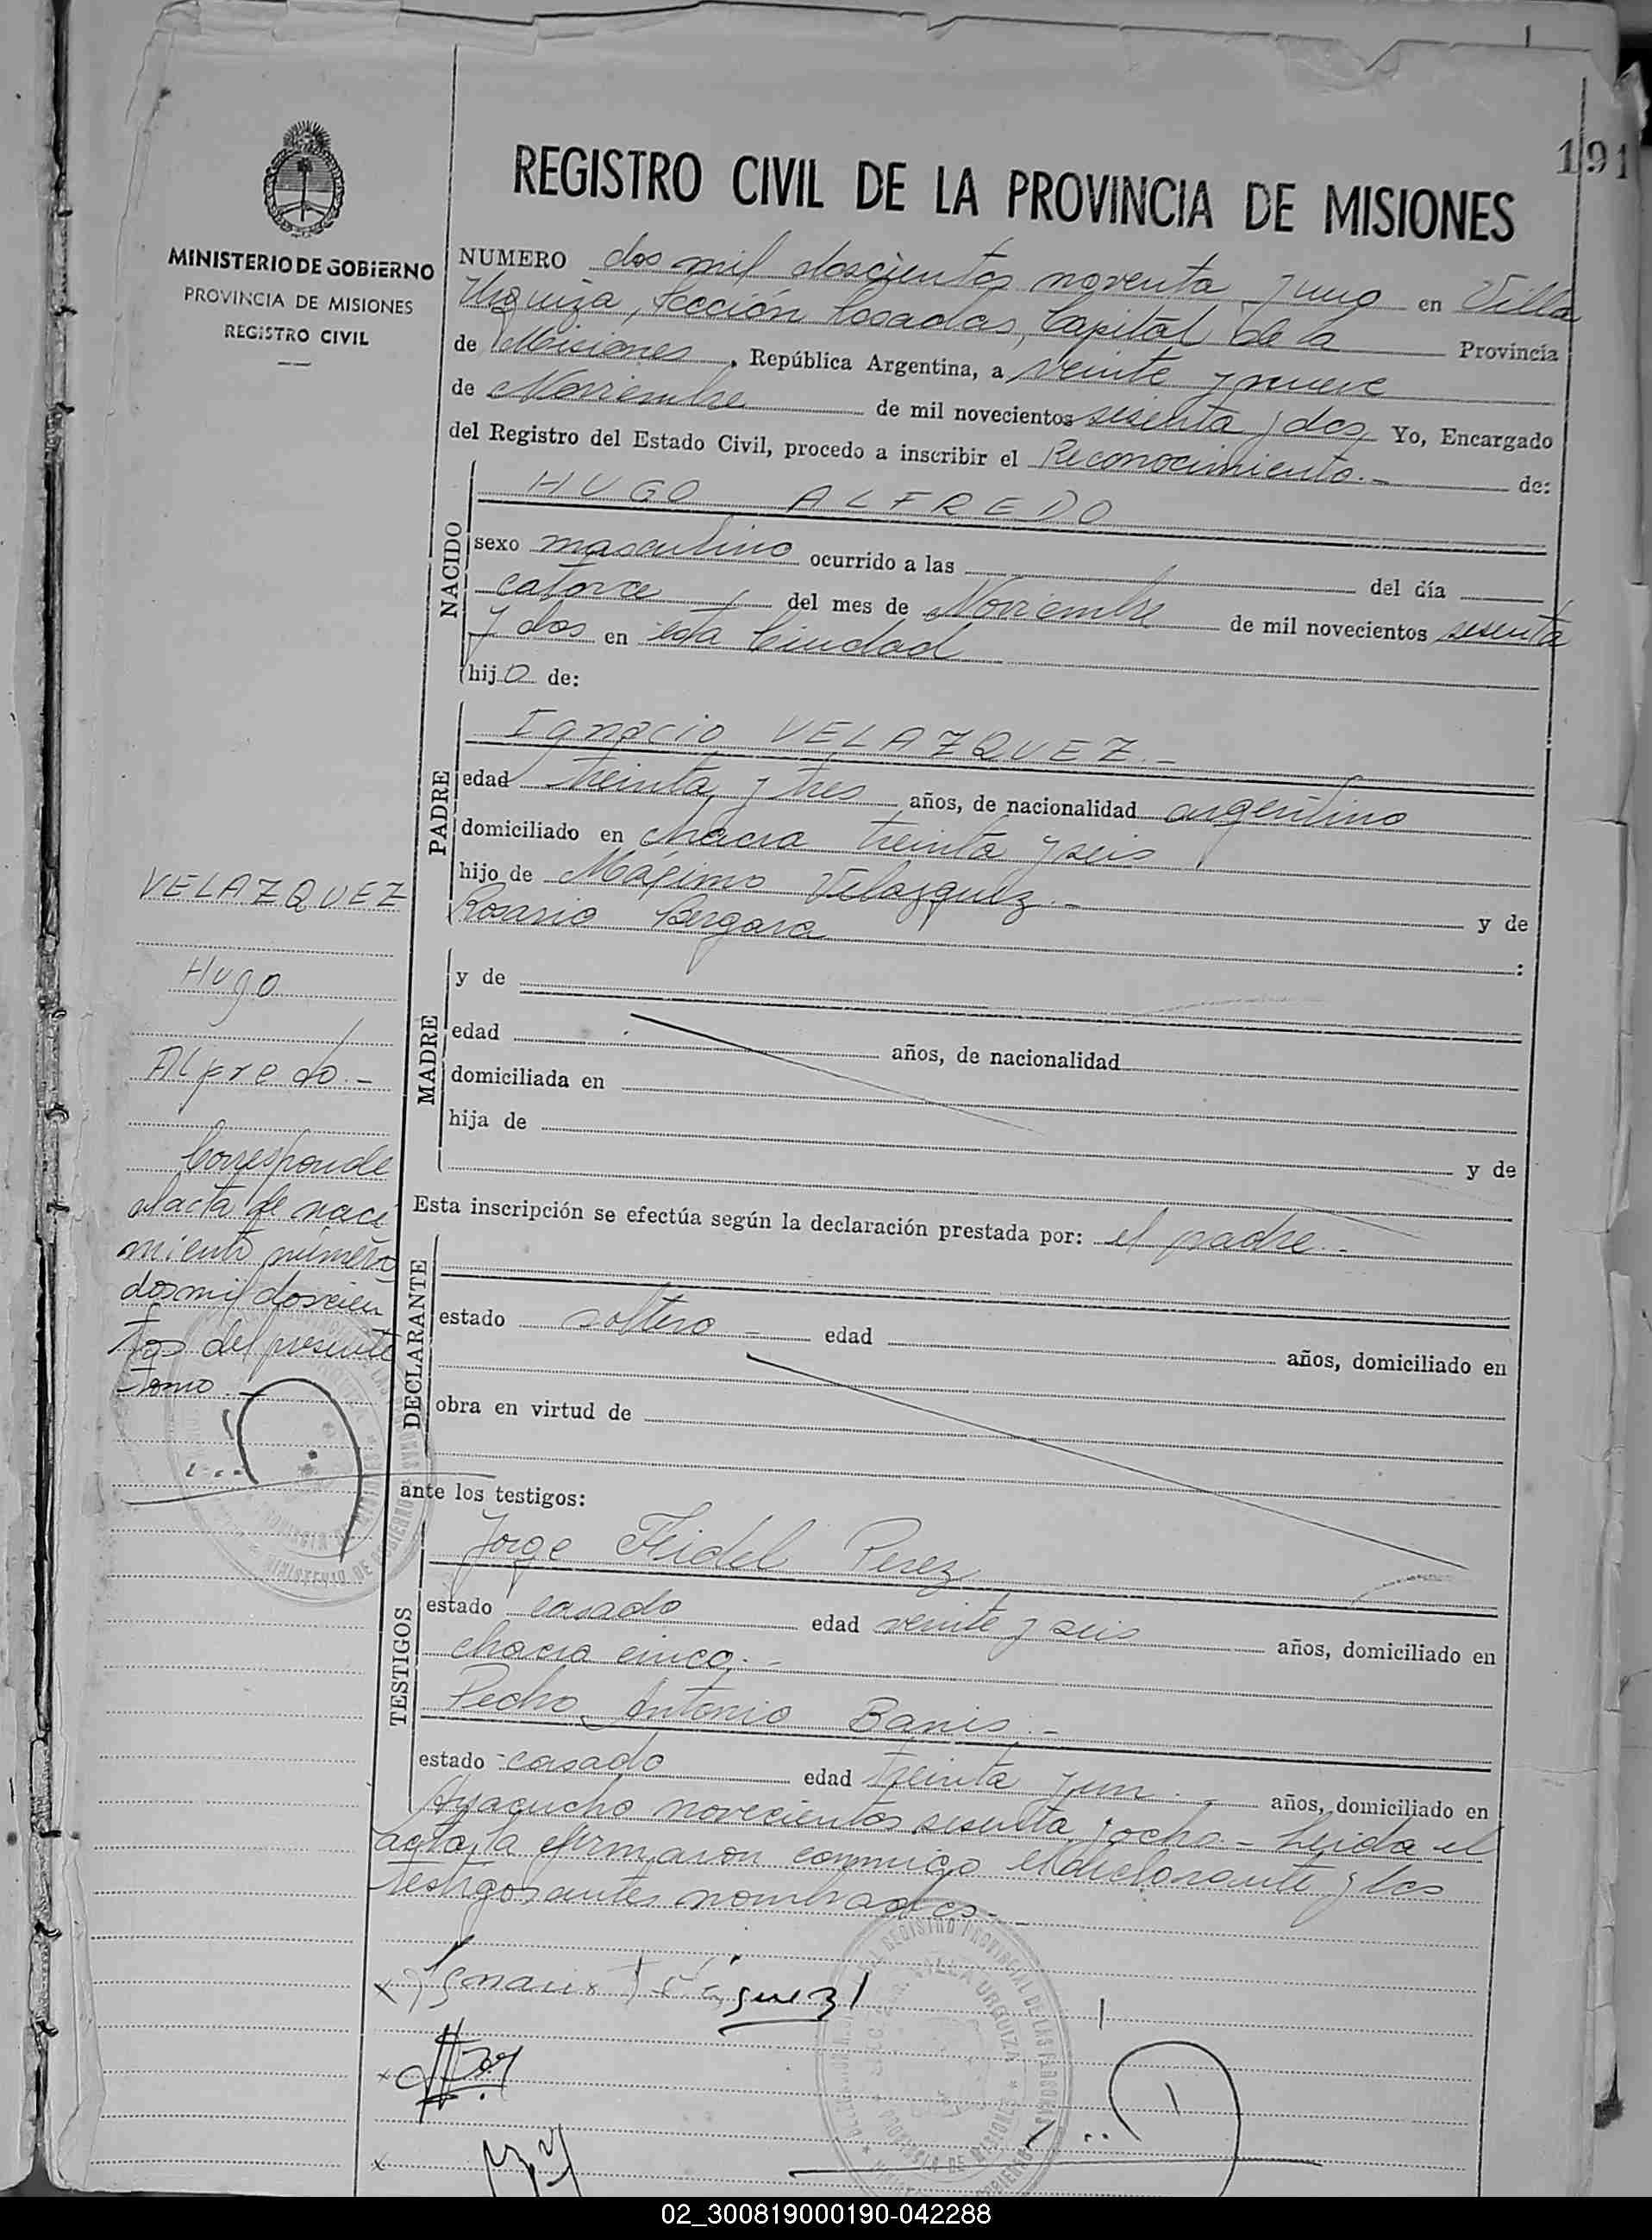 191
REGISTRO CIVIL DE LA PROVINCIA DE MISIONES
MINISTERIO DE GOBIERNO
PROVINCIA DE MISIONES
REGISTRO CIVIL
NUMERO dos mil doscientos noventa y uno en Villa
Urquiza, Sección Posadas, Capital de la Provincia
de Misiones, República Argentina, a veinte y nueve
de Noviembre de mil novecientos sesenta y dos Yo, Encargado
del Registro del Estado Civil, procedo a inscribir el Reconocimiento.- de:
NACIDO
HUGO ALFREDO
sexo masculino ocurrido a las del día
catorce del mes de Noviembre de mil novecientos sesenta
y dos en esta Ciudad
hijo de:
PADRE
Ignacio VELAZQUEZ.-
edad treinta y tres años, de nacionalidad argentino
domiciliado en chacra treinta y seis
hijo de Máximo Velazquez.- y de
Rosario Vergara :
MADRE
y de
edad años, de nacionalidad
domiciliada en
hija de
y de
Esta inscripción se efectúa según la declaración prestada por: el padre.-
DECLARANTE
estado soltero - edad años, domiciliado en
obra en virtud de
ante los testigos:
TESTIGOS
Jorge Fidel Perez
estado casado edad veinte y seis años, domiciliado en
chacra cinco.-
Pedro Antonio Banis.-
estado casado edad treinta y un.- años, domiciliado en
Ayacucho novecientos sesenta y ocho.- Leida el
acta, la firmaron conmigo el declarante y los
testigos antes nombrados.-
VELAZQUEZ
Hugo
Alfredo.-
Corresponde
al acta de naci
miento número
dos mil doscien
tos del presente
tomo.-
02_300819000190-042288